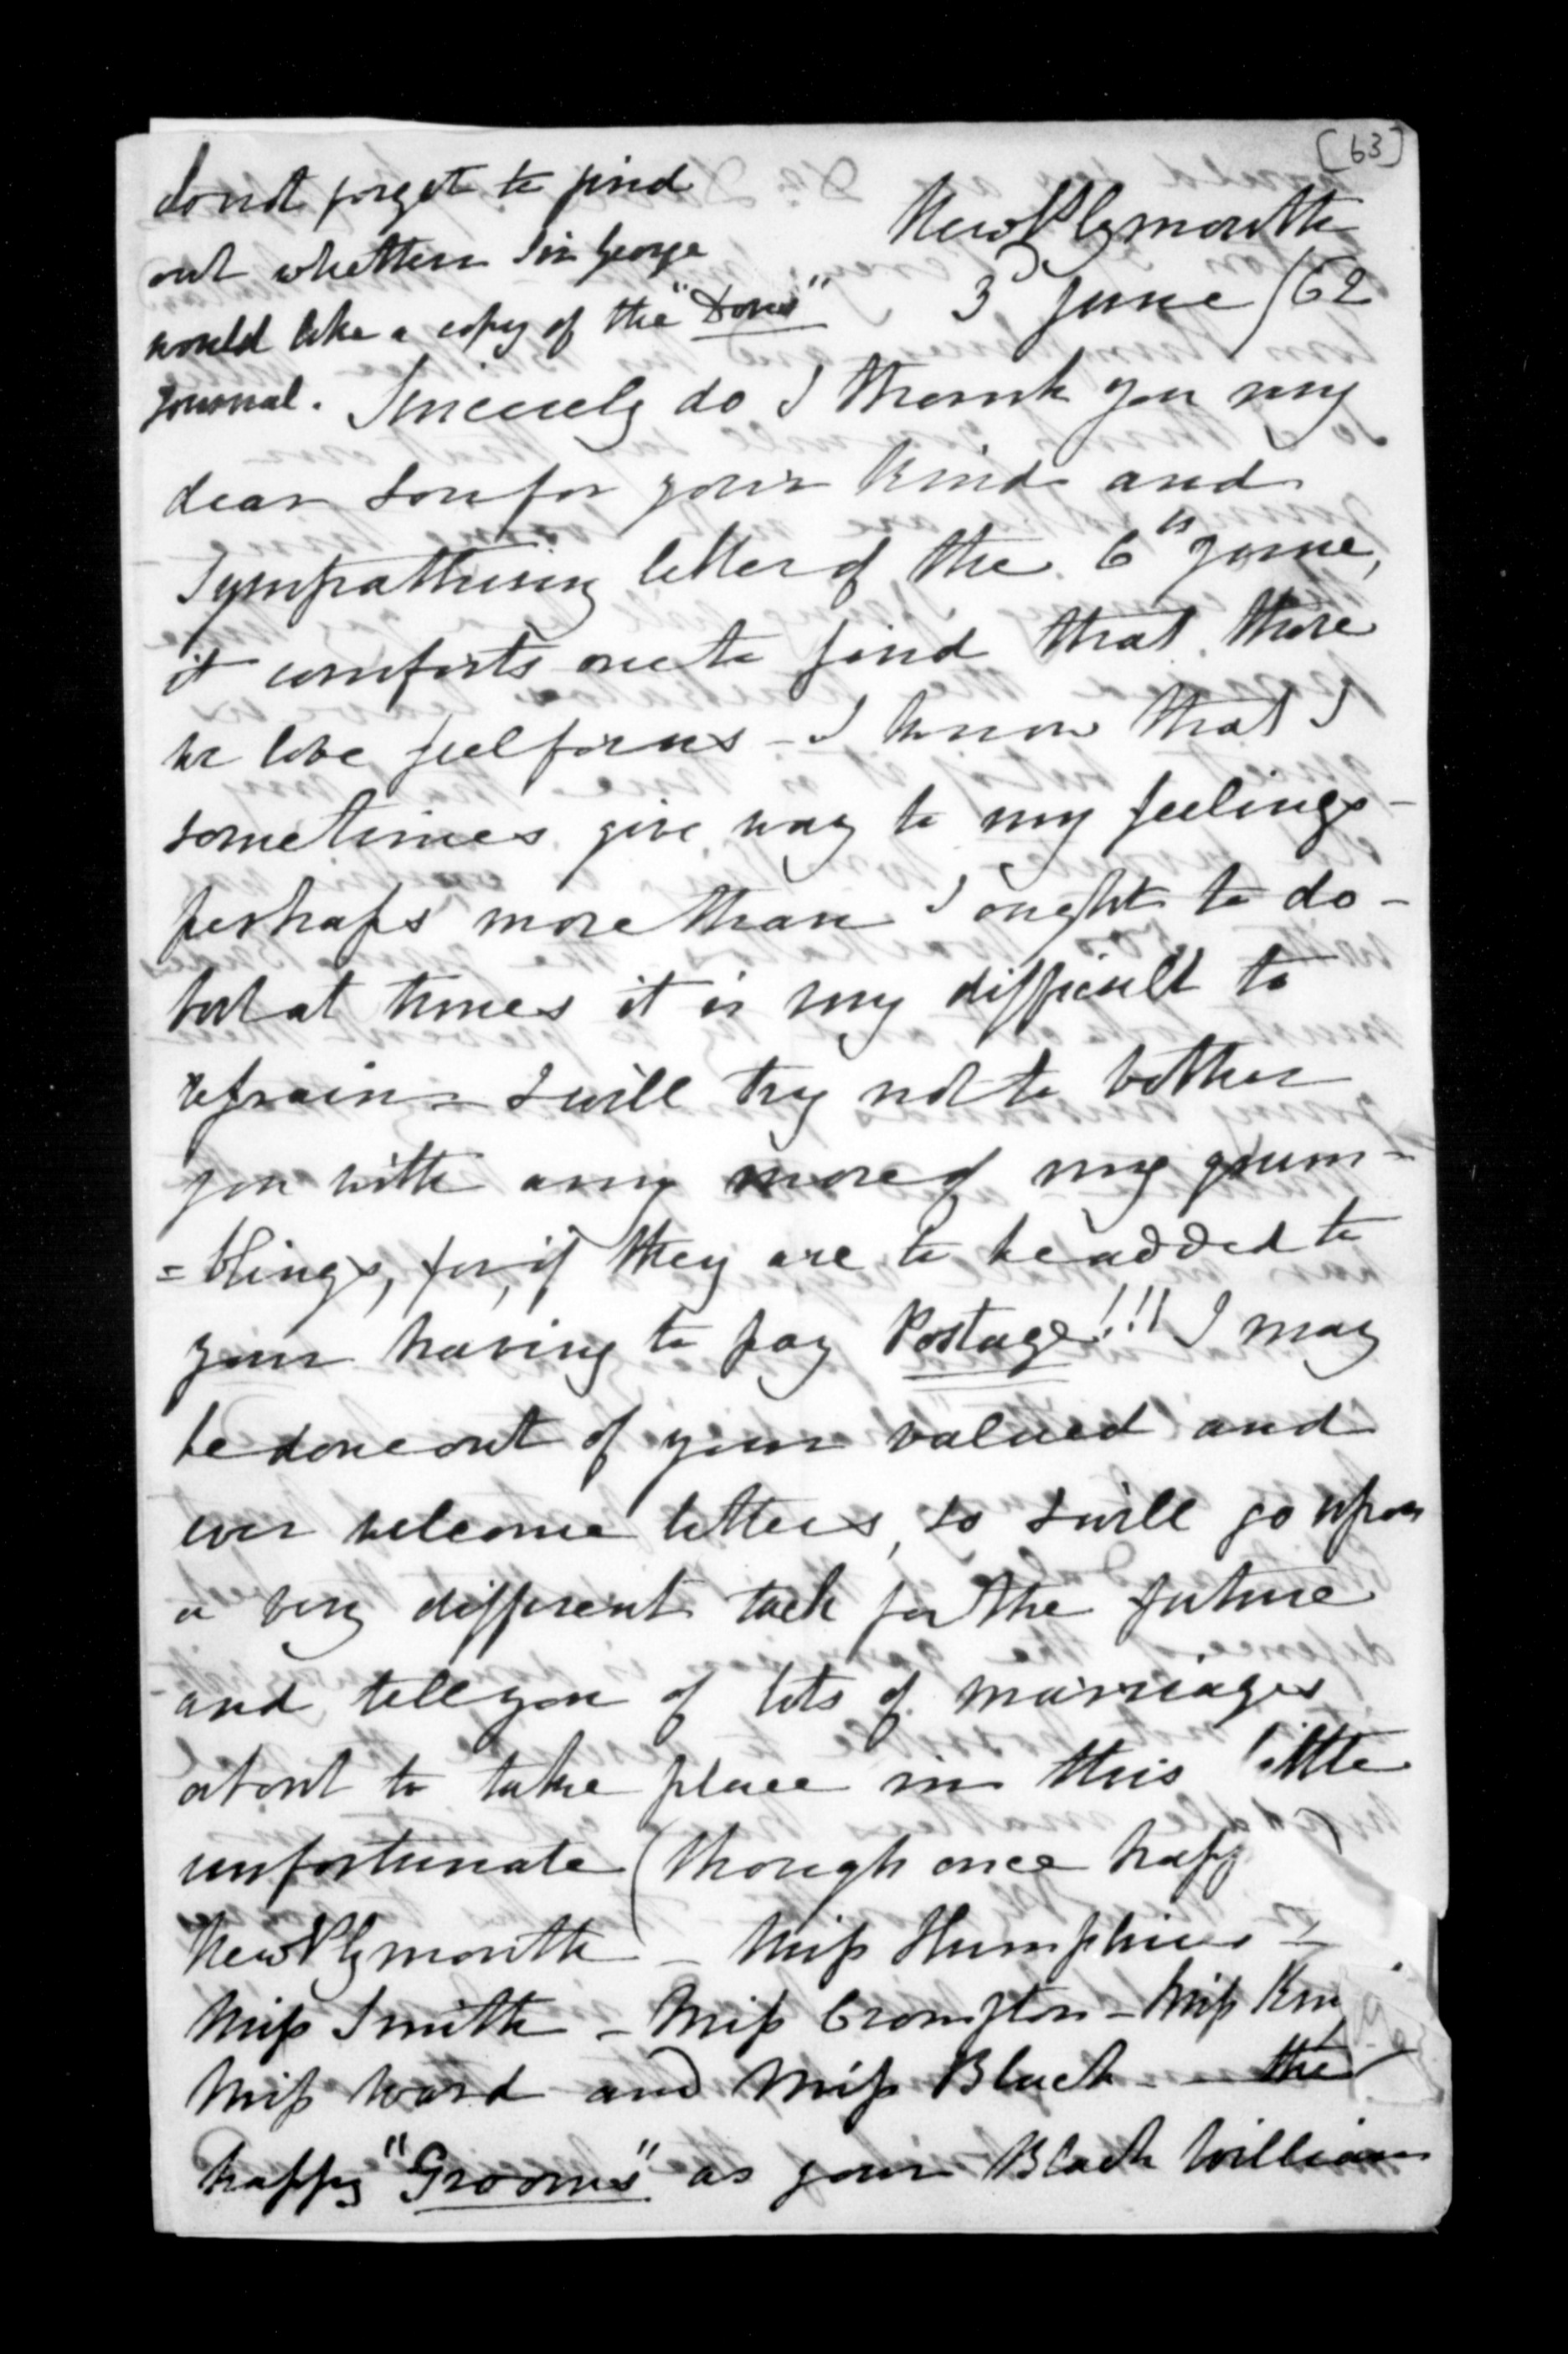 [63]
do not forget to find
out whether Sir George
would like a copy of the "Dove's"
Journal.
New Plymouth
3 June /62
Sincerely do I thank you my
dear Son for your kind and
Sympathising letter of the 6th June,
it comforts one to find that those
we love feel for us - I know that I
sometimes give way to my feelings -
perhaps more than I ought to do -
but at times it is very difficult to
refrain - I will try not to bother
you with any more of my grum-
=blings, for, if they are to be added to
your having to pay Postage!!! I may
be done out of your valued and
ever welcome letters, so I will go upon
a very different tack for the future
and tell you of lots of marriages
about to take place in this little
unfortunate (though once happy
New Plymouth - Miss Humphries -
Miss Smith - Miss Crompton - Miss
Miss Ward and Miss Black - - the
happy "Grooms" as your Black William